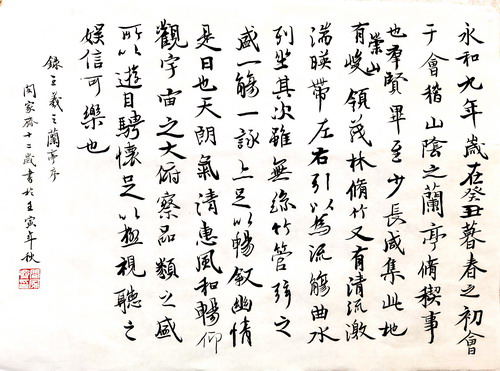 永和九年歲在癸丑暮春之初會
于會稽山陰之蘭亭脩稧事
也群賢畢至少長咸集此地
有崇山峻領茂林脩竹又有清流激
湍暎帶左右引以為流觴曲水
列坐其次雖無絲竹管弦之
盛一觴一詠亦足以暢叙幽情
是日也天朗氣清惠風和暢仰
觀宇宙之大俯察品類之盛
所以遊目騁懷足以極視聽之
娛信可樂也
錄王羲之蘭亭序
閆家齊十二歲書於壬寅年秋